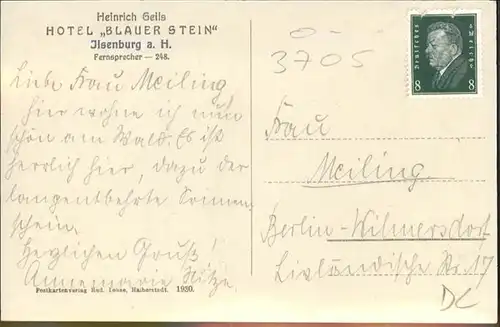 Heinrich Geils
HOTEL „BLAUER STEIN"
Jlsenburg a. H.
Fernsprecher — 248.
Liebe Frau Meiling
hier wohne ich nun
schön am Wald. Es ist
herrlich hier, dazu der
langentbehrte Sonnen
schein.
Herzlichen Gruß!
Annemarie
Postkartenverlag Rud. Halberstadt. 1930.
0 -
3705
Deutsches Reich
8 8
Frau
Meiling
Berlin-Wilmersdorf
Livländische Str. 17
DC